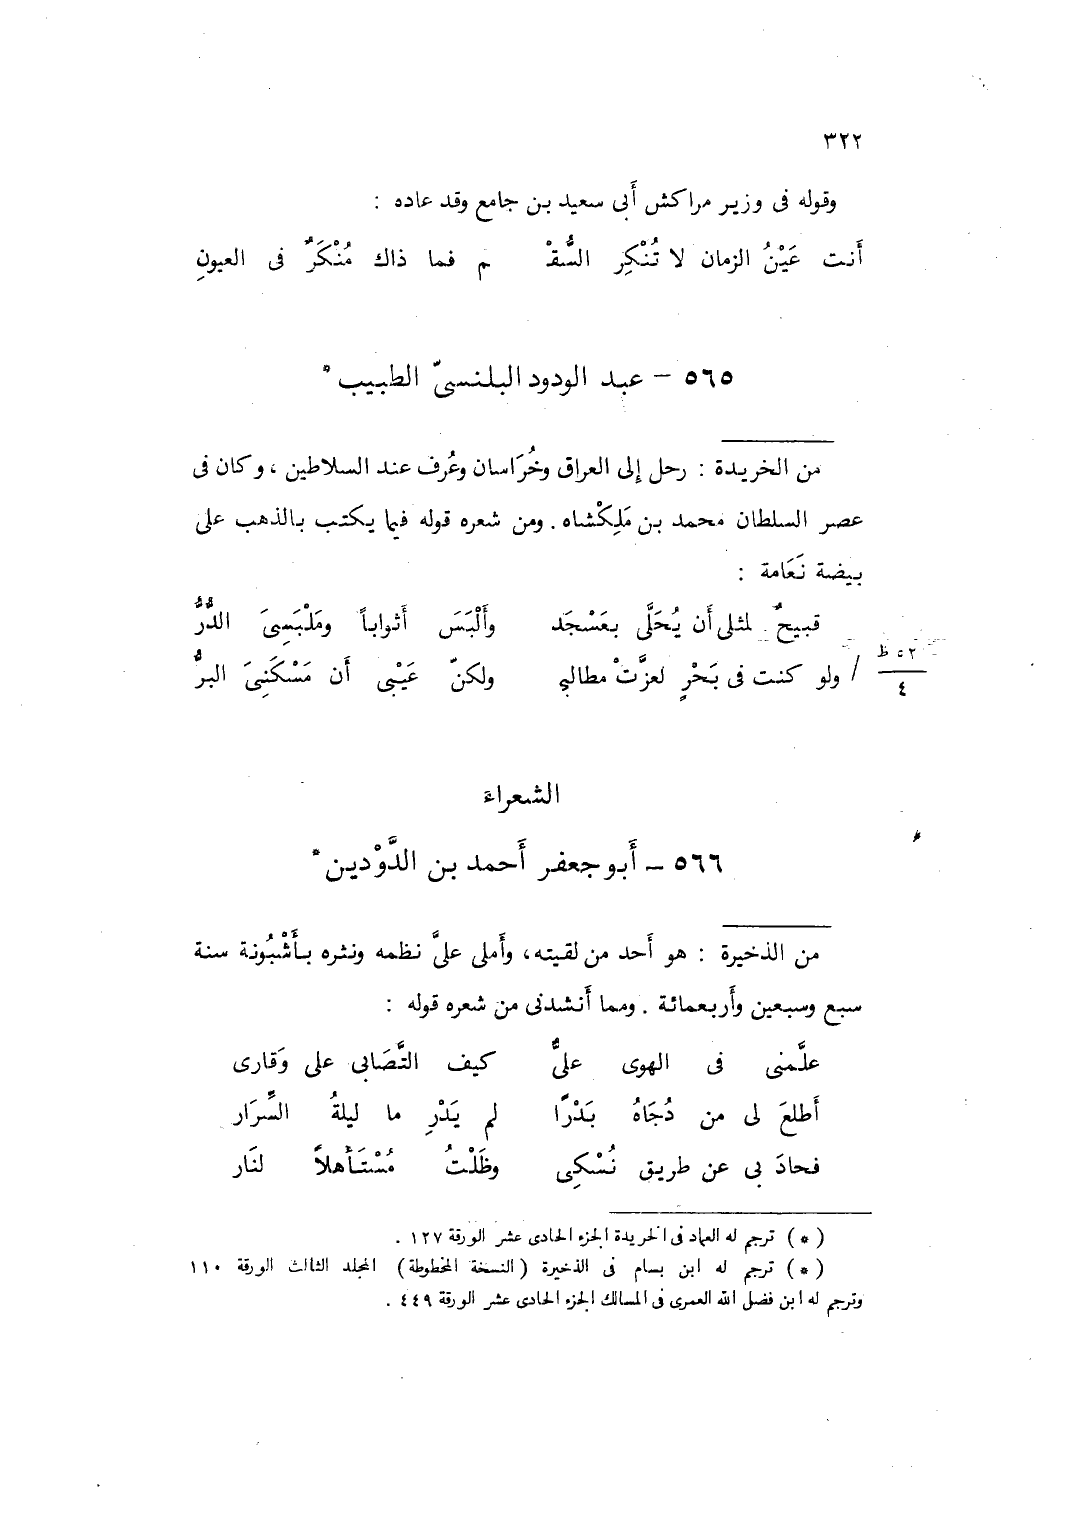 ٣٢٢
وقوله فى وزير مراكش أَبى سعيد بن جامع وقد عاده :
أَنت عَيْنُ الزمان لا تُنْكِر السُّقْـ م فما ذاك مُنْكَرٌ فى العيونِ
٥٦٥ – عبد الودود البلنسىّ الطبيب *
من الخريدة : رحل إلى العراق وخُرَاسان وعُرف عند السلاطين ، وكان فى
عصر السلطان محمد بن مَلِكْشاه . ومن شعره قوله فيما يكتب بالذهب على
بيضة نَعَامة :
قبيحٌ لمثلى أَن يُحَلَّى بعَسْجَد وأَلْبَسَ أَثواباً ومَلْبَسِىَ الدُّرُّ
/ ولو كنت فى بَحْرٍ لعزَّتْ مطالبى ولكنّ عَيْبى أَن مَسْكَنِىَ البرُّ
٥٢ ظ
٤
الشعراء
٥٦٦ – أَبو جعفر أَحمد بن الدَّوْدين *
من الذخيرة : هو أَحد من لقيته ، وأَملى علىَّ نظمه ونثره بأَشْبُونة سنة
سبع وسبعين وأَربعمائة . ومما أَنشدنى من شعره قوله :
علَّمنى فى الهوى علىٌّ كيف التَّصَابى على وَقارى
أَطلعَ لى من دُجَاهُ بَدْرًا لم يَدْرِ ما ليلةُ السِّرَار
فحادَ بى عن طريق نُسْكِى وظَلْتُ مُسْتَأْهلاً لنَار
( * ) ترجم له العماد فى الخريدة الجزء الحادى عشر الورقة ١٢٧ .
( * ) ترجم له ابن بسام فى الذخيرة ( النسخة المخطوطة ) المجلد الثالث الورقة ١١٠
وترجم له ابن فضل الله العمرى فى المسالك الجزء الحادى عشر الورقة ٤٤٩ .